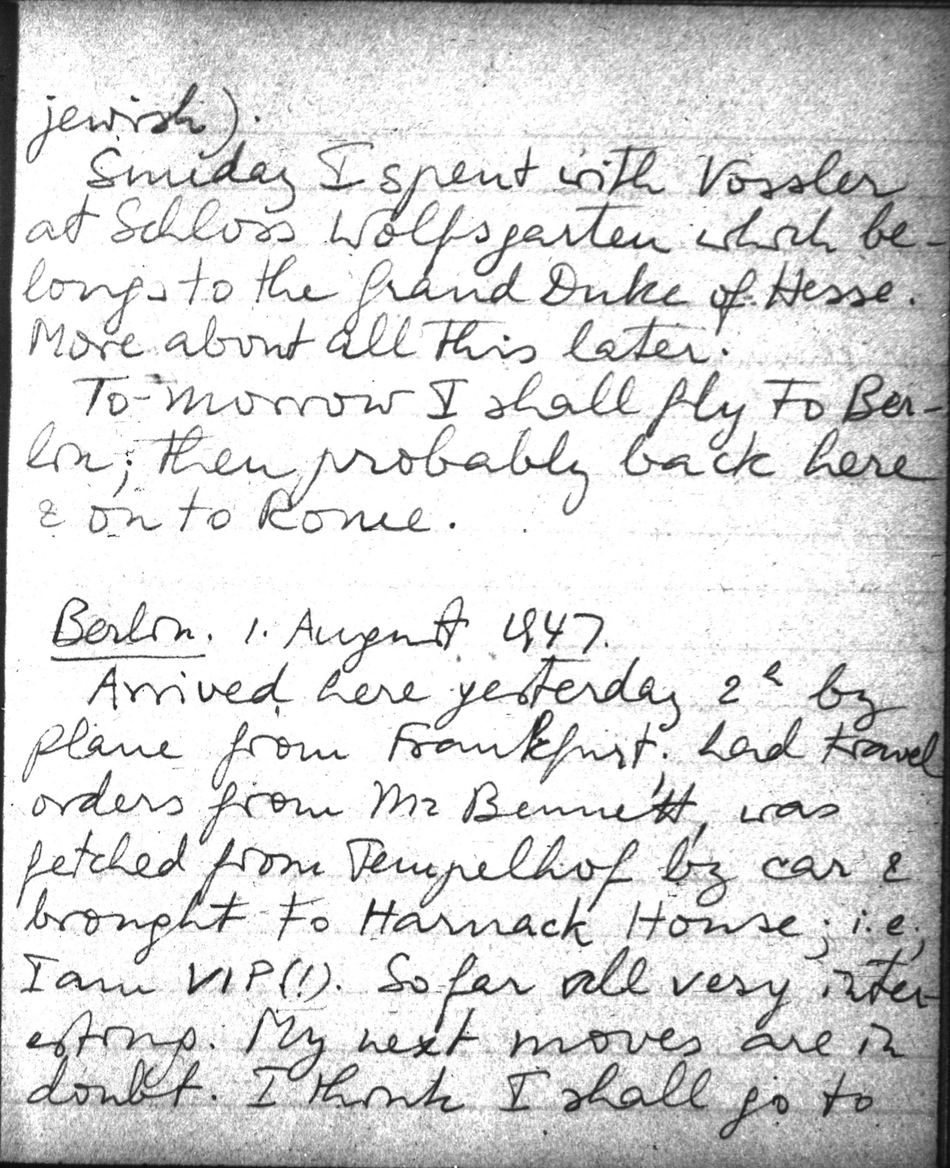 jewish).
Sunday I spent with Vossler
at Schloss Wolfsgarten which be-
longs to the Grand Duke of Hesse.
More about all this later.
To-morrow I shall fly to Ber-
lin; then probably back here
& on to Rome.
Berlin. 1. August 1947.
Arrived here yesterday 2h by
plane from Frankfurt; had travel
orders from Mr Bennett, was
fetched from Tempelhof by car &
brought to Harnack House; i.e.,
I am VIP(!). So far all very inter-
esting. My next moves are in
doubt. I think I shall go to